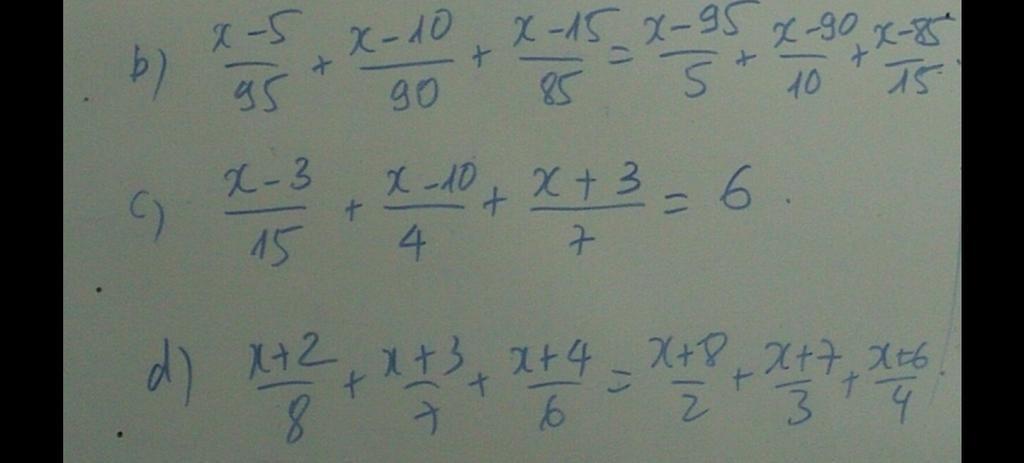 b) \frac{x-5}{95} + \frac{x-10}{90} + \frac{x-15}{85} = \frac{x-95}{5} + \frac{x-90}{10} + \frac{x-85}{15}.
c) \frac{x-3}{15} + \frac{x-10}{4} + \frac{x+3}{7} = 6.
d) \frac{x+2}{8} + \frac{x+3}{7} + \frac{x+4}{6} = \frac{x+8}{2} + \frac{x+7}{3} + \frac{x+6}{4}.